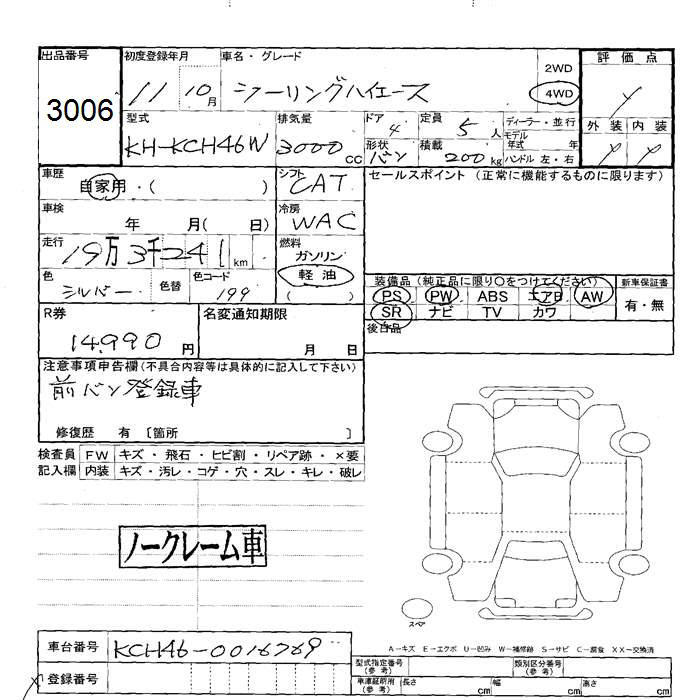 出品番号
3006
初度登録年月
11 10月
車名・グレード
ツーリングハイエース
2WD
4WD
評価点
外装 内装
型式
KH-KCH46W
排気量
3000cc
ドア 4
定員 5人
形状 バン
積載 200kg
ディーラー・並行
モデル年式 年
ハンドル 左・右
車歴
自家用・( )
シフト
CAT
セールスポイント (正常に機能するものに限ります)
車検
年 月( 日)
冷房
WAC
走行
19万3千241km
燃料
ガソリン
軽油
( )
色
シルバー
色替
色コード
199
装備品 (純正品に限り○をつけてください)
PS PW ABS エアB AW
SR ナビ TV カワ
新車保証書
有・無
後日品
R券
14.990円
名変通知期限
月 日
注意事項申告欄(不具合内容等は具体的に記入して下さい)
前バン登録車
修復歴 有 〔箇所 〕
検査員記入欄
FW キズ・飛石・ヒビ割・リペア跡・×要
内装 キズ・汚レ・コゲ・穴・スレ・キレ・破レ
ノークレーム車
スペア
A-キズ E-エクボ U-凹み W-補修跡 S-サビ C-腐食 XX-交換済
車台番号
KCH46-0016769
登録番号
型式指定番号(参考)
類別区分番号(参考)
車庫証明用(参考)
長さ cm
幅 cm
高さ cm